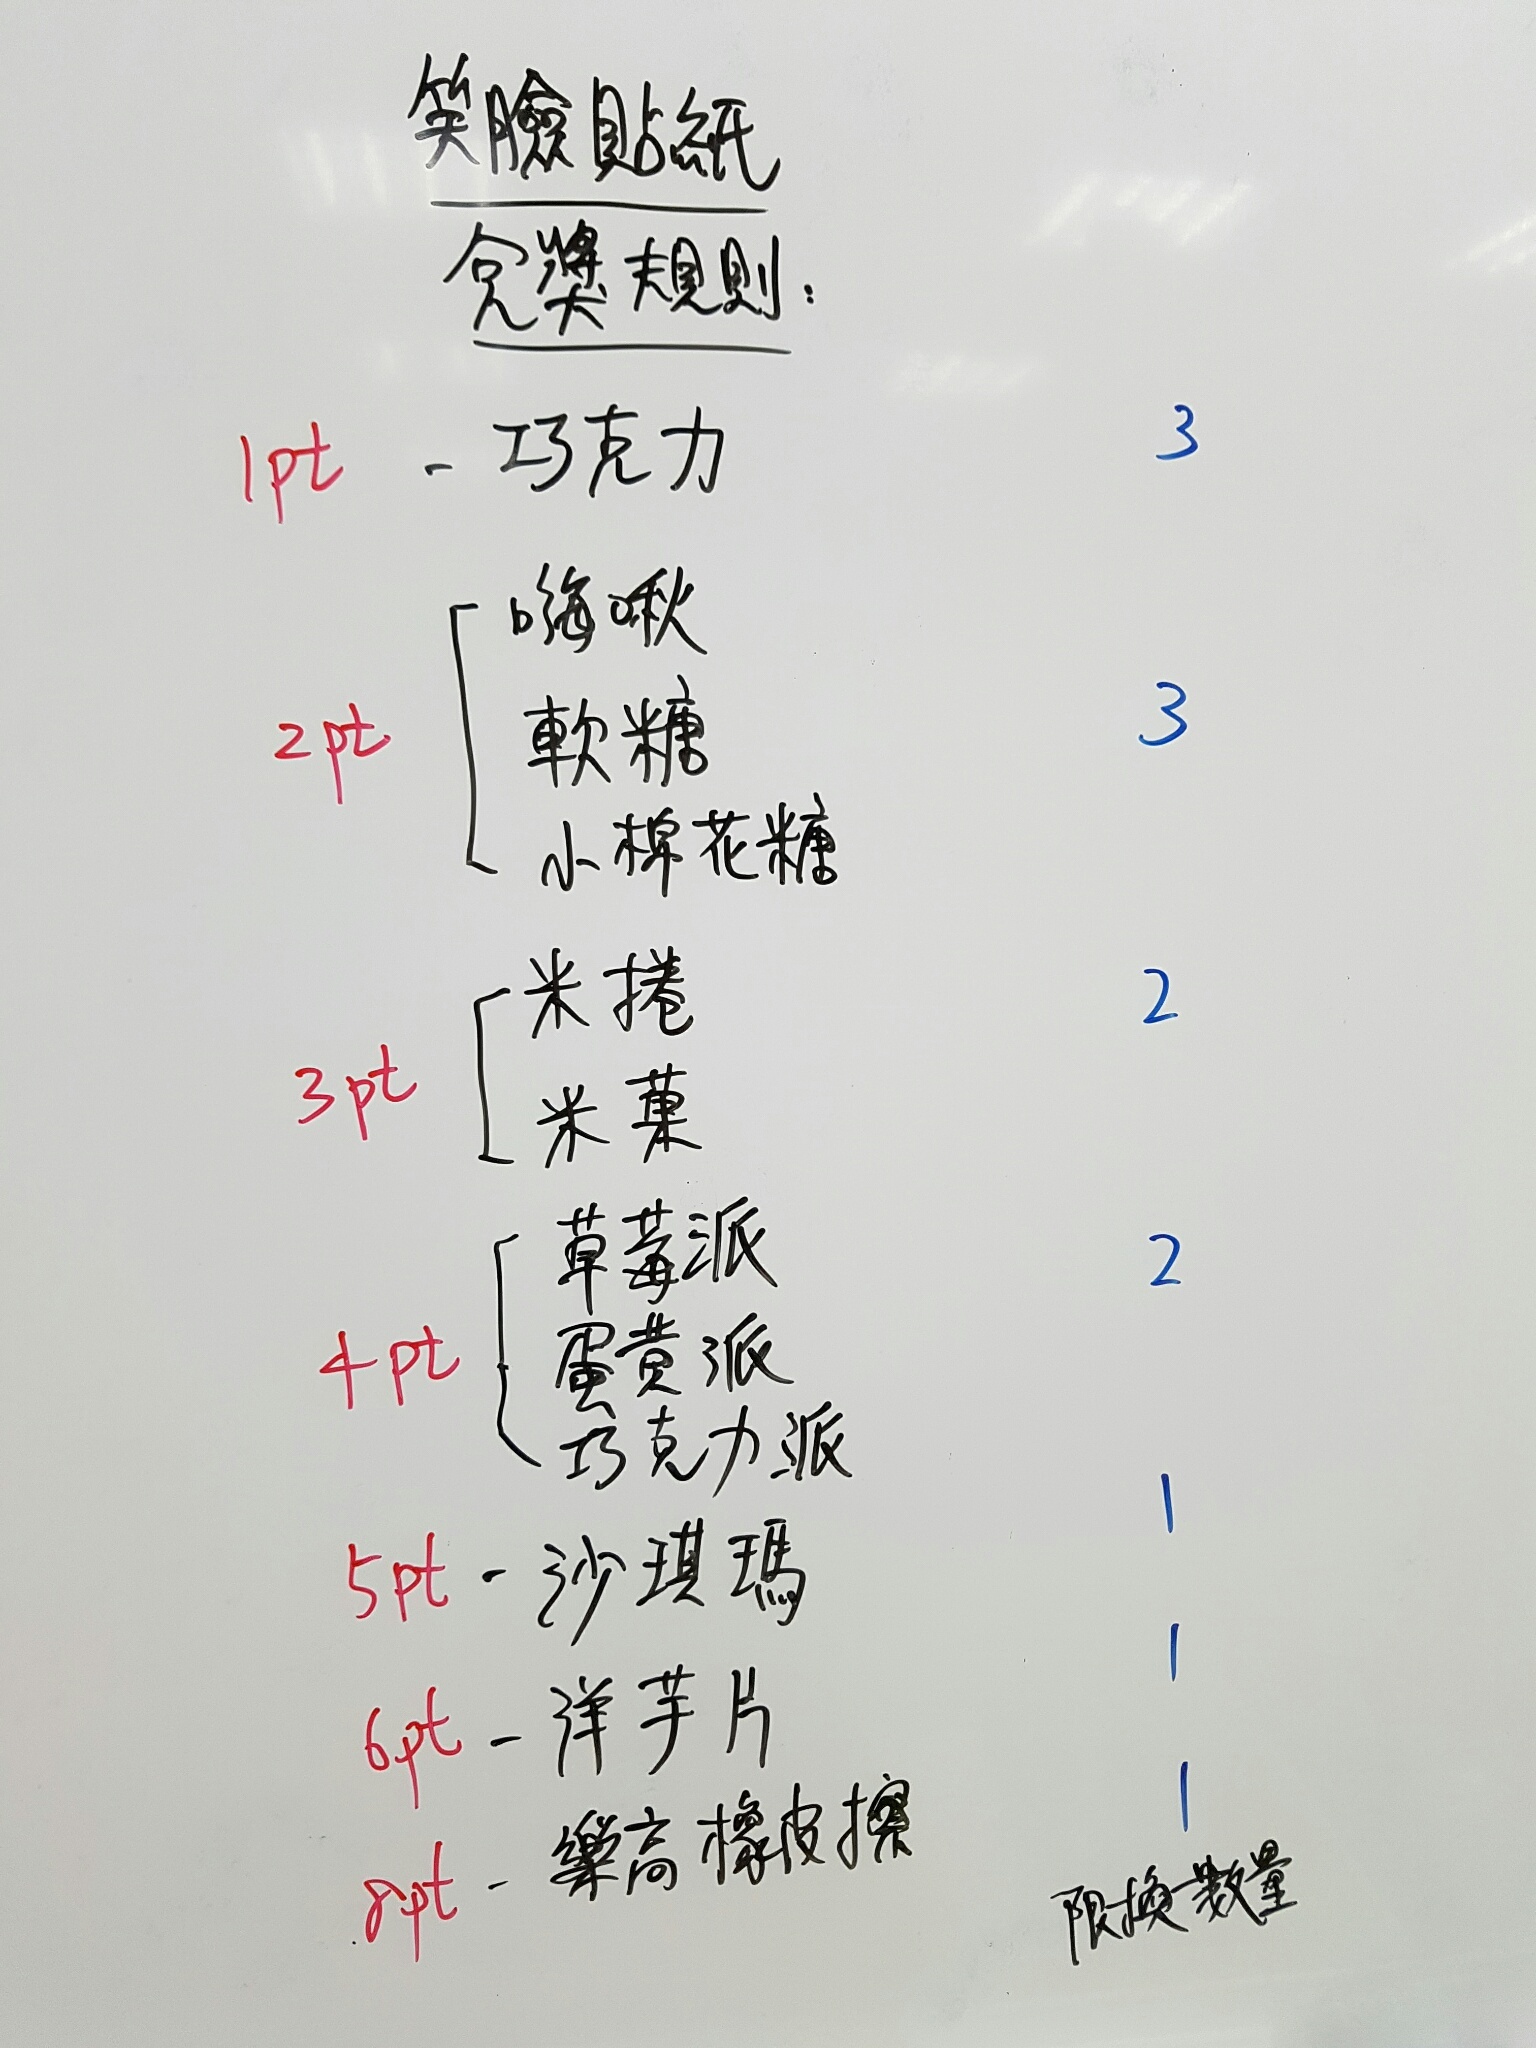 笑臉貼紙
兌獎規則:
1pt - 巧克力 3
2pt
嗨啾
軟糖 3
小棉花糖
3pt
米捲 2
米菓
4pt
草莓派 2
蛋黃派
巧克力派
5pt - 沙琪瑪 1
6pt - 洋芋片 1
8pt - 樂高橡皮擦 1
限換數量